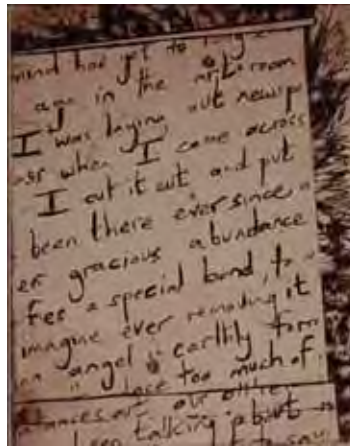 mind had yet to
ago in the art room
I was laying out newsp
ass when I came across
I cut it out and put
been there ever since,
er gracious abundance
fee a special bond, to
imagine ever removing it
an angel in earthly form
too much of
our other
been talking about